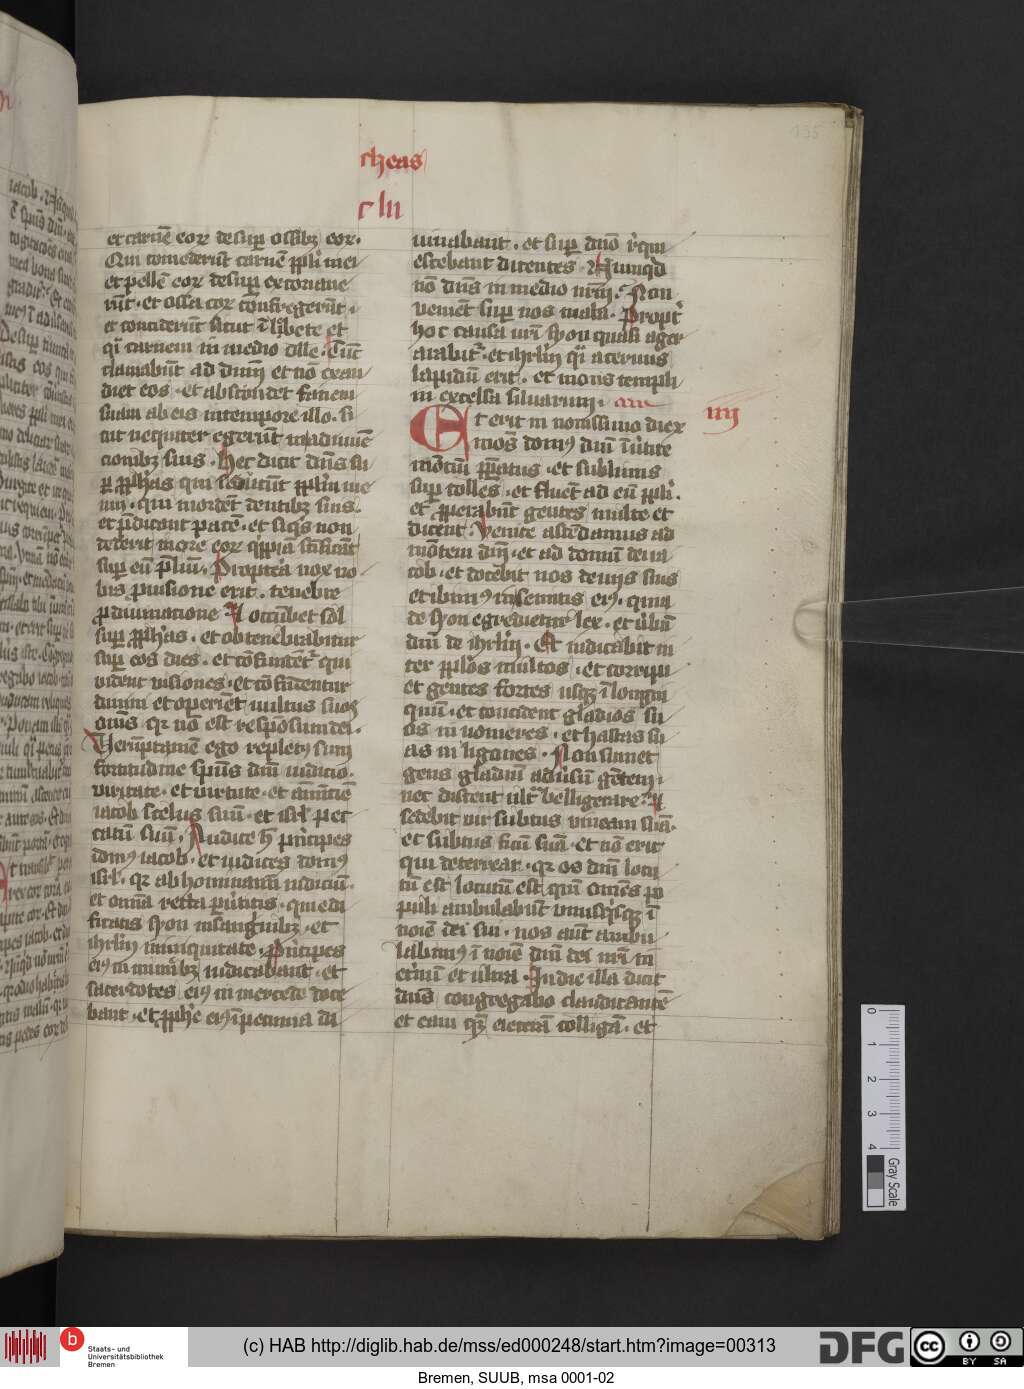 cheas
c lii
et carnē eoꝝ desuꝑ ossibꝫ eoꝝ.
Qui comederūt carnē ppli mei
et pellē eoꝝ desuꝑ excoriaue
rūt. et ossa eoꝝ cōnfregerūt.
et conciderūt sicut ī lebete et
qͥ carnem in medio olle. Tūc
clamabūt ad dnm et nō exau
diet eos. et abscondet faciem
suam ab eis in tempore illo. si
cut nequiter egerūt in adinuē
cionibꝫ suis. Hec dicit dns su
ꝑ ꝓphās qui seducūt pplm me
um. qui mordēt dentibꝫ suis.
et p̄dicant pacē. et siqͥs non
dederit in ore eoꝝ qͥppiā scificāt
suꝑ eū p̄liū. Propterea nox vo
bis ꝓ uisione erit. tenebre
ꝓ diuinatione. Et occūbet sol
suꝑ ꝓphās. et obtenebrabitur
suꝑ eos dies. et cōfundentͬ qui
vident visiones. et cōfundentur
diuini et operiēt vultus suos
oms qꝛ nō est respōsum dei.
Verūptamē ego repletꝰ sum
fortitudine spūs dni iudicio.
virtute. et ut annūciē
iacob scelus suū. et isrl pec
catū suū. Audite h̄ prīcipes
domꝰ iacob. et iudices domꝰ
isrl. qꝛ abhominamī iudiciū.
et omīa recta ꝑuertitis. qui edi
ficatis syon in sanguībꝫ. et
ihrlm in iniquitate. Prīcipes
eiꝰ in munībꝫ iudicabant. et
sacerdotes eiꝰ in mercede doce
bant. et ꝓphe eiꝰ ī pecunia di
uinabant. et suꝑ dno req̄ui
escebant dicentes. Nunqͥd
nō dns in medio nrm. Non
venient suꝑ nos mala. Propt̄
hoc causa vrī syon quasi ager
arabitͬ. et ihrlm qͥ aceruus
lapidū erit. et mons templi
in excelsa siluarum.
iiij
Et erit in nouissimo dieꝝ
mons domꝰ dni ī utice
mōciū p̄patus. et sublimis
suꝑ colles. et fluēt ad eū ppli.
et ꝓperabūt gentes multe et
dicent. Venite ascēdamus ad
mōtem dni. et ad domū dei ia
cob. et docebit nos de uijs suis
et ibimꝰ in semitis eiꝰ. quia
de syon egredietur lex. et ūbū
dni de ihrlm. Et iudicabit in
ter pplos multos. et corripi
et gentes fortes usqꝫ ī longin
quū. et concident gladios su
os in uomeres. et hastas su
as in ligones. Non sumet
gens gladiū aduersū gētem.
nec discent ultͣ belligerare. Et
sedebit vir subtus vineam suā.
et subtus ficū suā. et nō erit
qui deterreat. qꝛ os dni locu
tū est. quia omēs po
puli ambulabūt vnusqͥsqꝫ ī
noīe dei sui. nos aūt ambu
labimꝰ ī noīe dni dei nrī in
et̄nū et ultra. In die illa dicit
dns congregabo claudicantē
et eam quā eieceram colligā. et
0
1
2
3
4
Gray Scale
b
Staats- und
Universitätsbibliothek
Bremen
(c) HAB http://diglib.hab.de/mss/ed000248/start.htm?image=00313
DFG
cc
BY SA
Bremen, SUUB, msa 0001-02